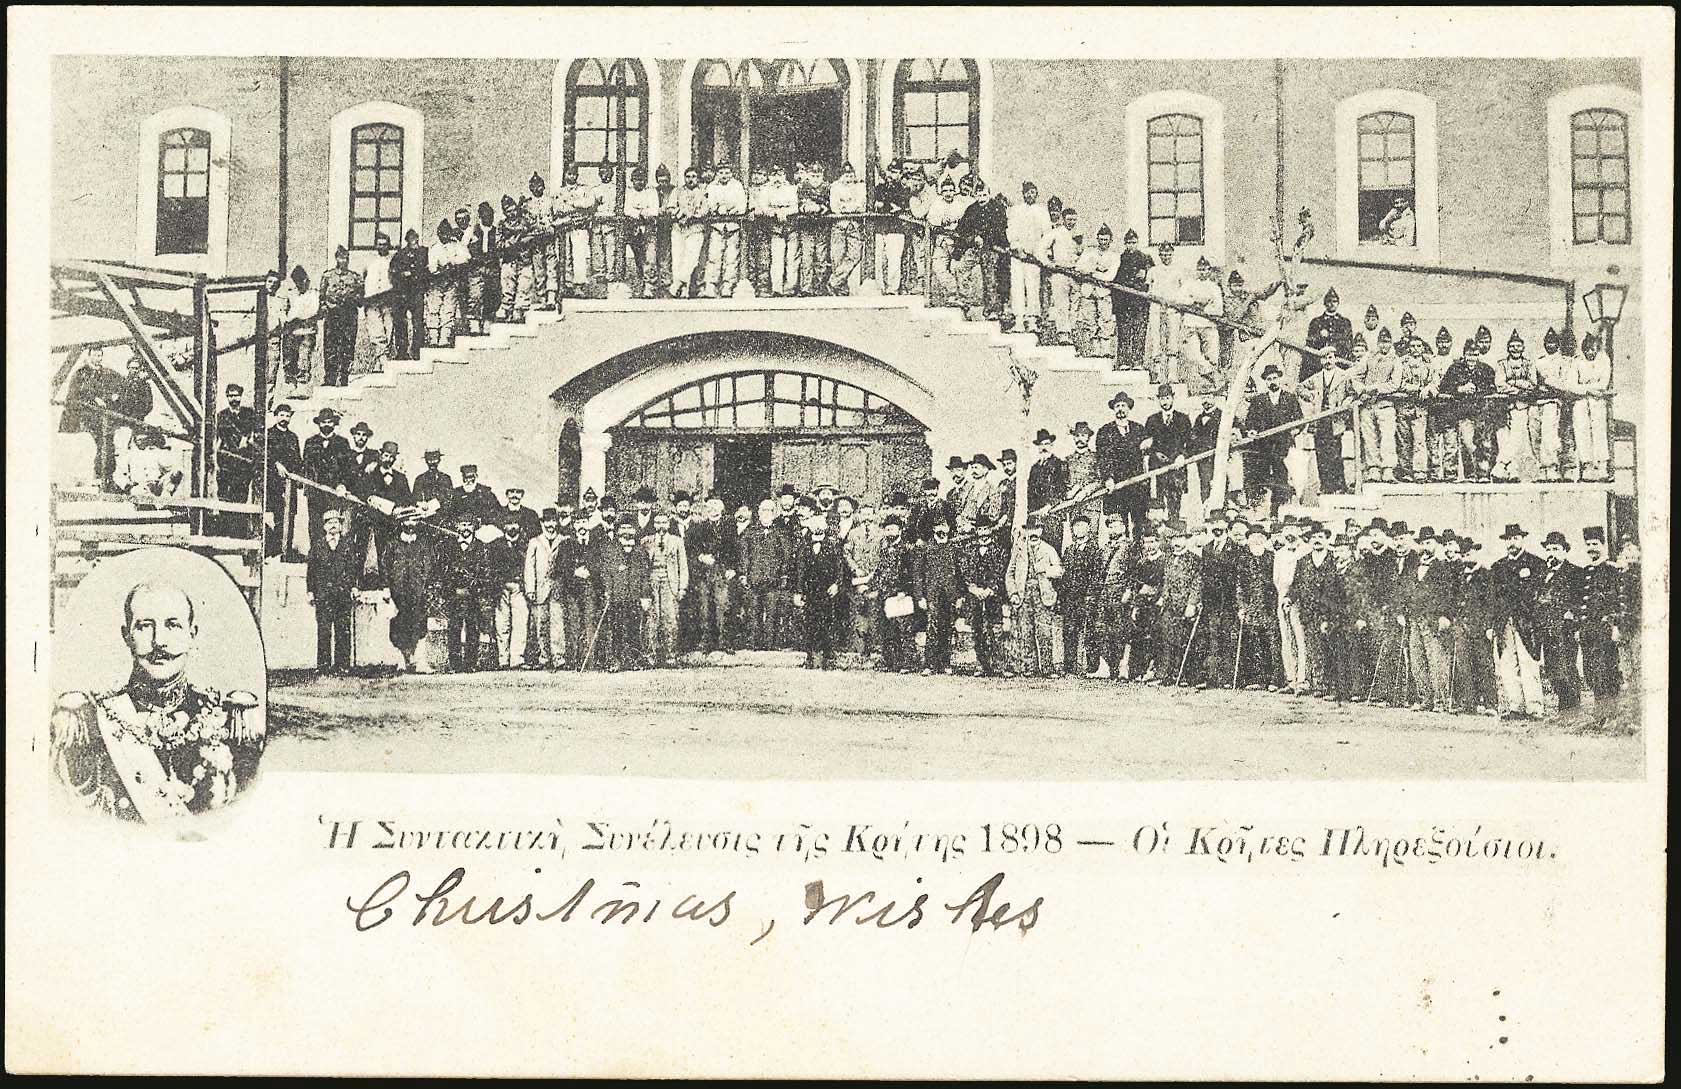 Ἡ Συντακτικὴ Συνέλευσις τῆς Κρήτης 1898 — Οἱ Κρῆτες Πληρεξούσιοι.
Christmas, Wishes